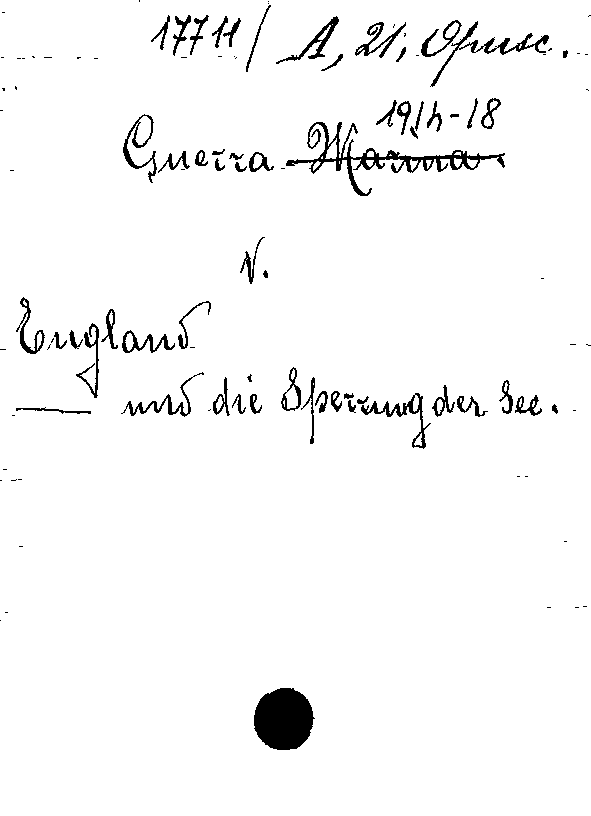 17711 / A, 21, Opusc.
1914-18
Guerra - Marina.
V.
England
— und die Sperrung der See.